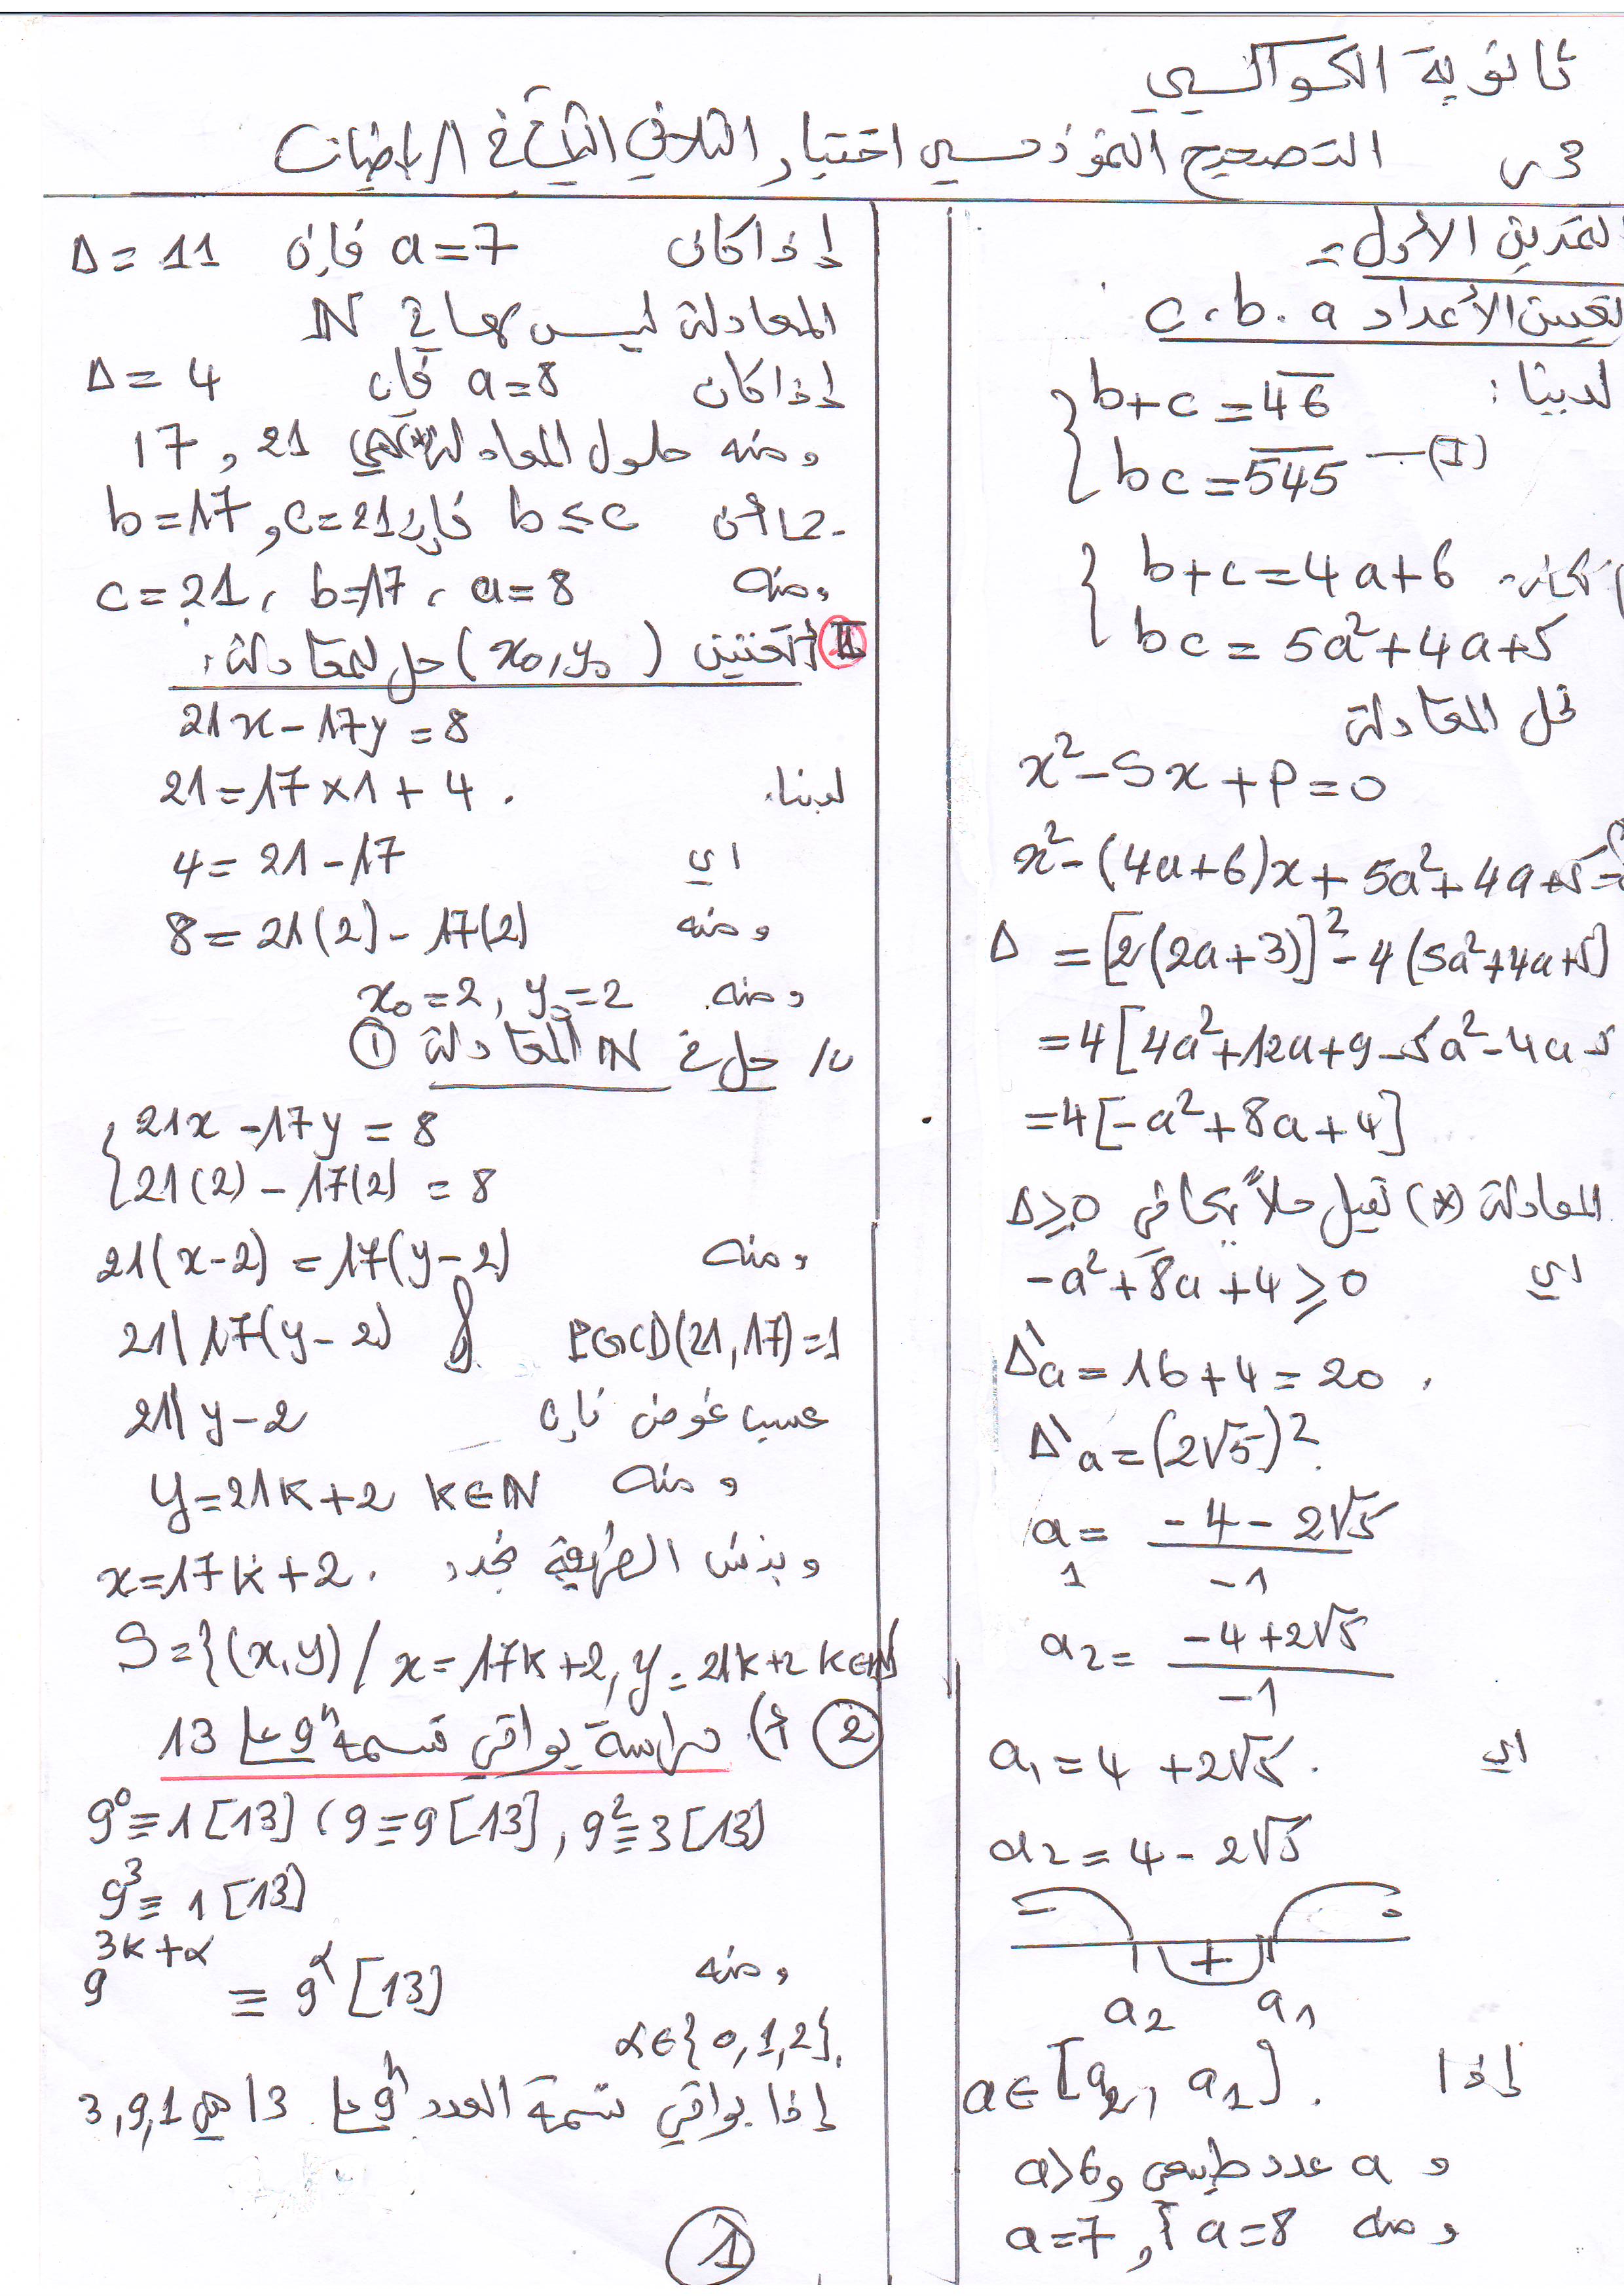 ثانوية الكواكبي
3 ر التصحيح النموذجي اختبار الثلاثي الثاني في الرياضيات
التمرين الأول =
تعيين الأعداد c . b . a
لدينا :
b+c = 46
bc = 545 —(I)
b+c = 4a+6
bc = 5a²+4a+5
نحل المعادلة
x² - Sx + P = 0
x² - (4a+6)x + 5a²+4a+5 =
Δ = [2(2a+3)]² - 4(5a²+4a+5)
= 4[4a²+12a+9-5a²-4a-5
= 4[-a²+8a+4]
المعادلة (*) تقبل حلاً Δ≥0
أي -a²+8a+4 ≥ 0
Δ'a = 16+4 = 20 .
Δ'a = (2√5)²
a₁ = (-4-2√5)/-1
a₂ = (-4+2√5)/-1
أي a₁ = 4+2√5 .
a₂ = 4-2√5
- + -
a₂ a₁
إذا a∈[a₂, a₁] .
و a عدد طبيعي و a>6
و منه a=8 أو a=7
إذا كان a=7 فإن Δ = 11
المعادلة ليس لها في IN
إذا كان a=8 فإن Δ = 4
ومنه حلول المعادلة (*) هي 21 و 17
بما أن b≤c فإن c=21 و b=17
ومنه a=8 ، b=17 ، c=21
II 1 أ) تعيين (x₀,y₀) حل للمعادلة :
21x - 17y = 8
لدينا 21 = 17×1 + 4 .
أي 4 = 21 - 17
ومنه 8 = 21(2) - 17(2)
ومنه x₀=2 , y₀=2
ب/ حل في IN المعادلة ①
21x - 17y = 8
21(2) - 17(2) = 8
ومنه 21(x-2) = 17(y-2)
21|17(y-2) و PGCD(21,17)=1
حسب غوص فإن 21|y-2
ومنه y=21k+2 k∈IN
وبنفس الطريقة نجد x=17k+2 .
S={(x,y) / x=17k+2, y=21k+2 k∈IN
② أ) دراسة بواقي قسمة 9ⁿ على 13
9⁰≡1[13] , 9≡9[13] , 9²≡3[13]
9³≡1[13]
ومنه 9^(3k+α) ≡ 9^α [13]
α∈{0,1,2}.
إذا بواقي قسمة العدد 9ⁿ على 13 هي 3,9,1
①